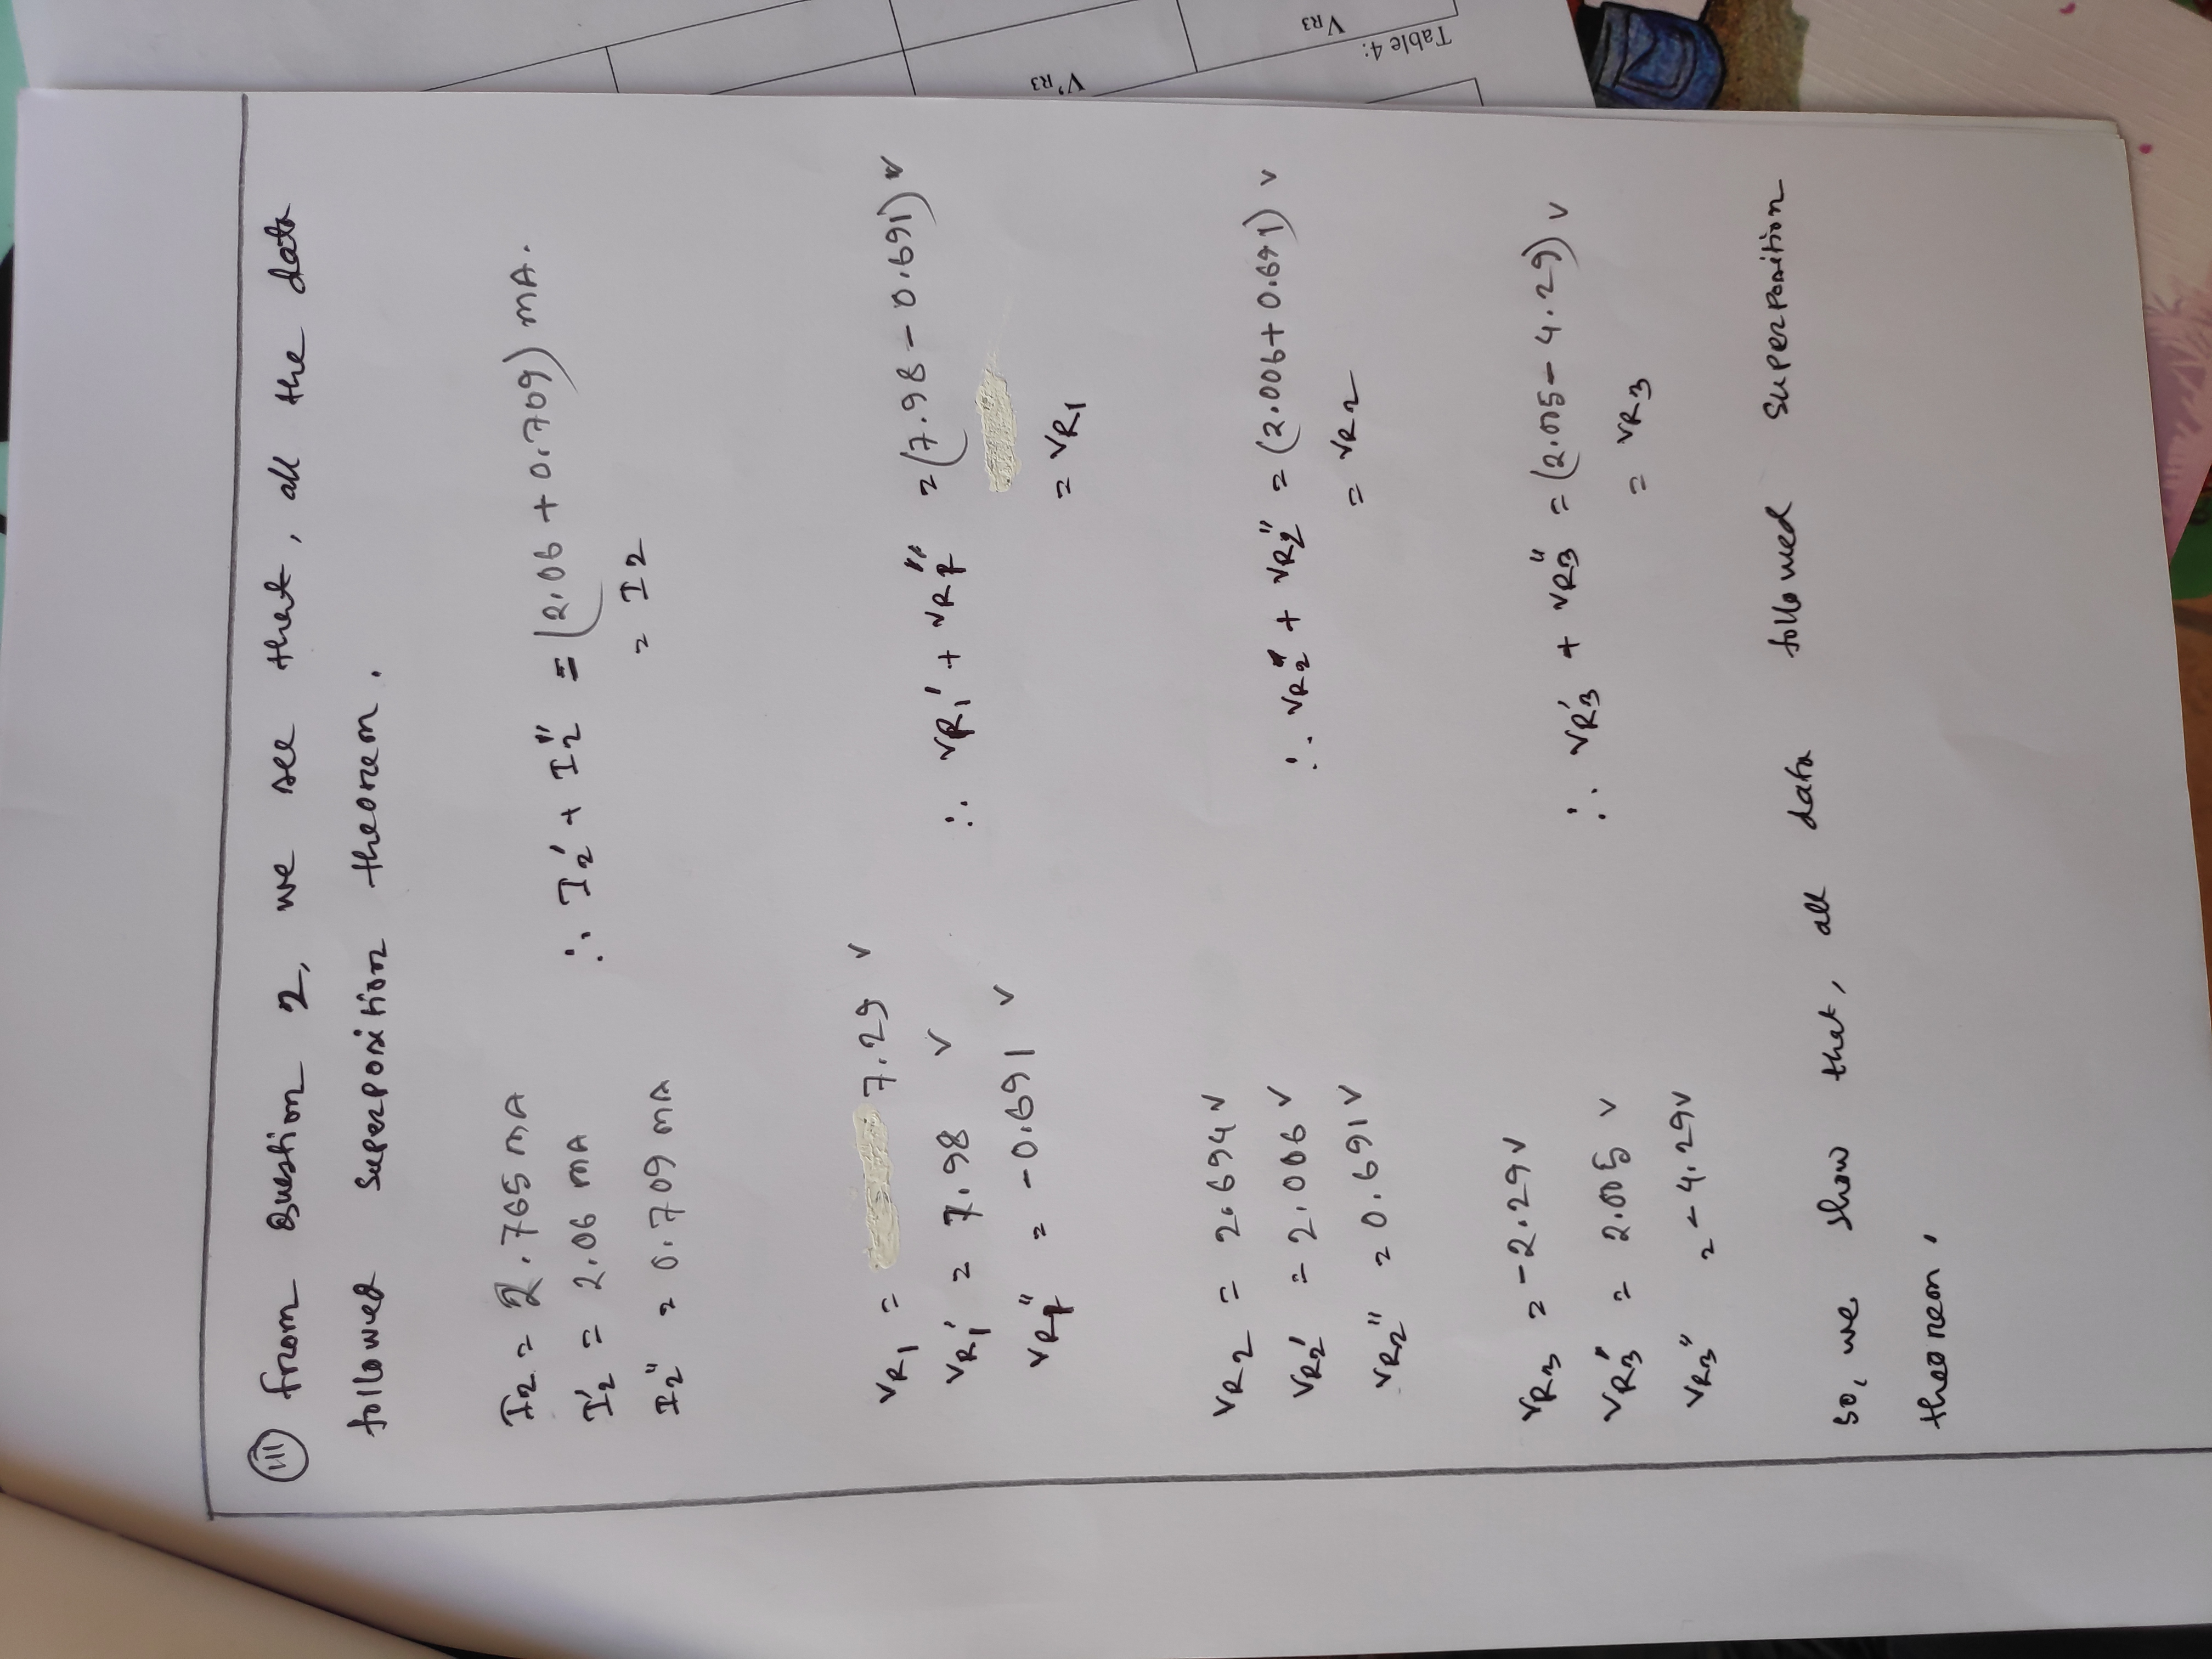 (III) From Question 2, we see that, all the data
followed superposition theorem.
I2 = 2.765 mA
I2' = 2.06 mA
I2'' = 0.709 mA
∴ I2' + I2'' = (2.06 + 0.709) mA.
= I2
VR1 = 7.29 V
VR1' = 7.98 V
VR1'' = -0.691 V
∴ VR1' + VR1'' = (7.98 - 0.691) V
= VR1
VR2 = 2.694 V
VR2' = 2.006 V
VR2'' = 0.691 V
∴ VR2' + VR2'' = (2.006 + 0.691) V
= VR2
VR3 = -2.29 V
VR3' = 2.005 V
VR3'' = -4.29 V
∴ VR3' + VR3'' = (2.005 - 4.29) V
= VR3
So, we show that, all data followed superposition
theorem.
Table 4:
VR3
V'R3